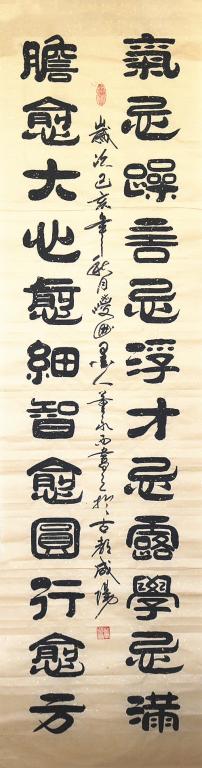 氣忌躁言忌浮才忌露學忌滿
膽愈大心愈細智愈圓行愈方
歲次己亥年秋月
書之於古都咸陽